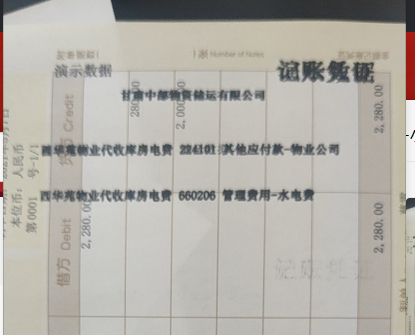 演示数据
记账凭证
甘肃中部物资储运有限公司
西华苑物业代收库房电费 224101 其他应付款-物业公司
西华苑物业代收库房电费 660206 管理费用-水电费
Number of Notes
贷方 Credit
280.00
2,000.00
2,280.00
借方 Debit
2,280.00
2,280.00
本位币: 人民币
第 0001 号-1/1